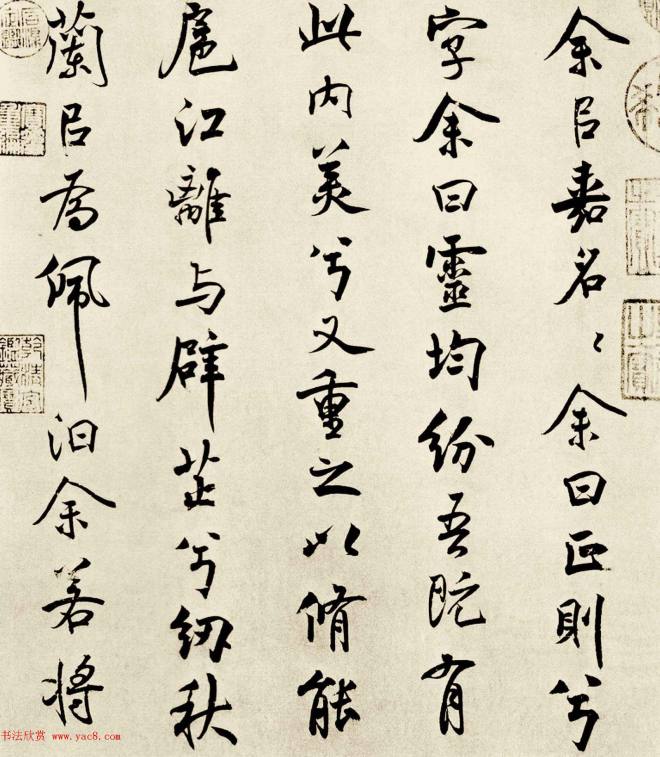 余㠯嘉名〻余曰正則兮
字余曰靈均紛吾既有
此内美兮又重之以脩能
扈江離与辟芷兮紉秋
蘭㠯為佩汩余若將
书法欣赏 www.yac8.com